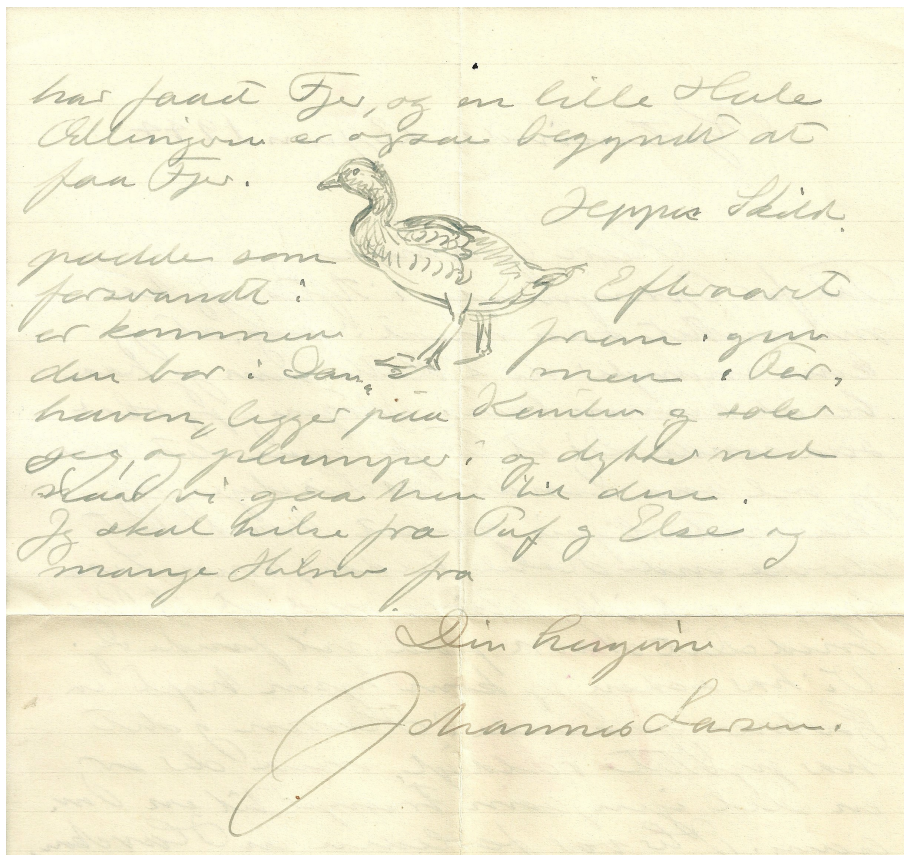 har faaet Fjer, og en lille Hale
Ællingen er ogsaa begyndt at
faa Fjer.
Jeppes Skild
padde som
forsvandt i Efteraaret
er kommen frem igen
den bor i Dammen i Før,
haven, ligger paa Kanten og soler
sig, og plumper i og dykker ned
naar vi gaar hen til den.
Jeg skal hilse fra Puf og Else og
mange Hilsner fra
Din hengivne
Johannes Larsen.